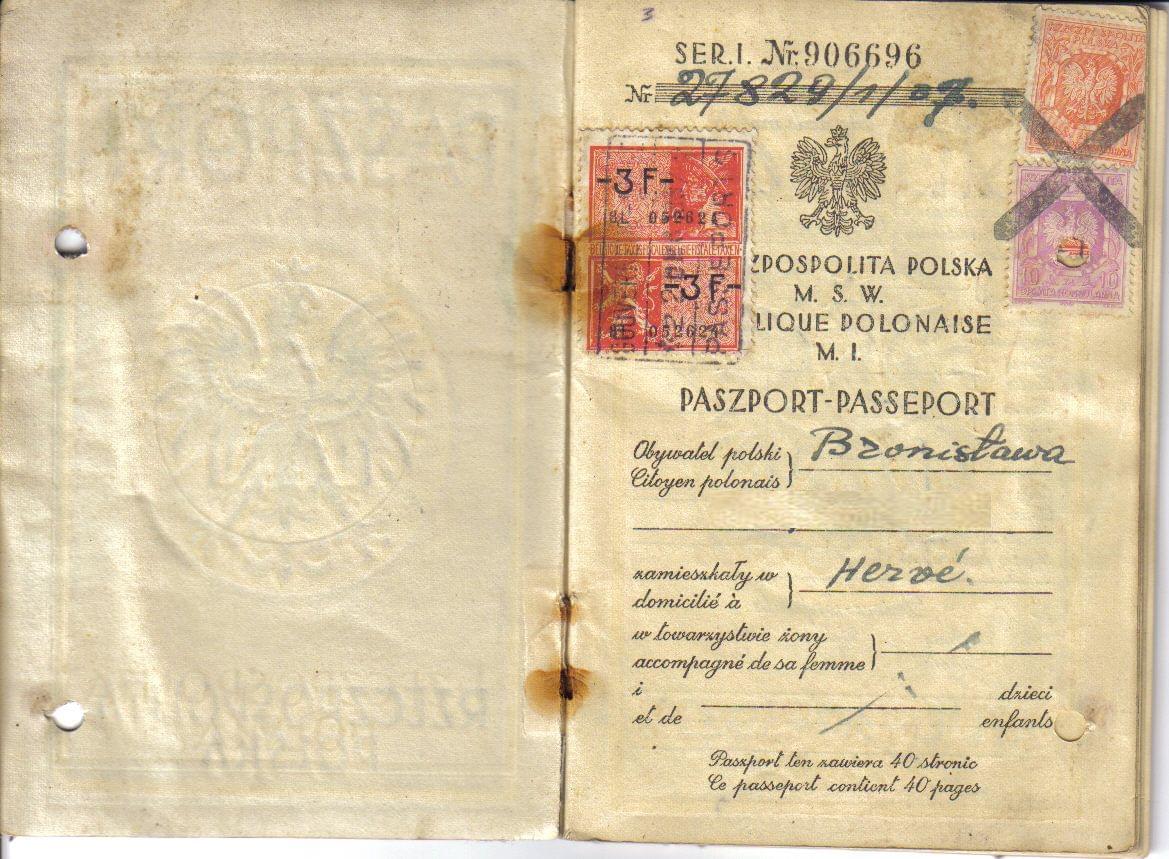 3
SER.I. Nr.906696
Nr 27829/1/09.
-3F-
-3F-
ZPOSPOLITA POLSKA
M. S. W.
LIQUE POLONAISE
M. I.
PASZPORT-PASSEPORT
Obywatel polski
Citoyen polonais
Bronisława
zamieszkały w
domicilié à
Hervé.
w towarzystwie żony
accompagné de sa femme
i dzieci
et de enfants
Paszport ten zawiera 40 stronic
Ce passeport contient 40 pages